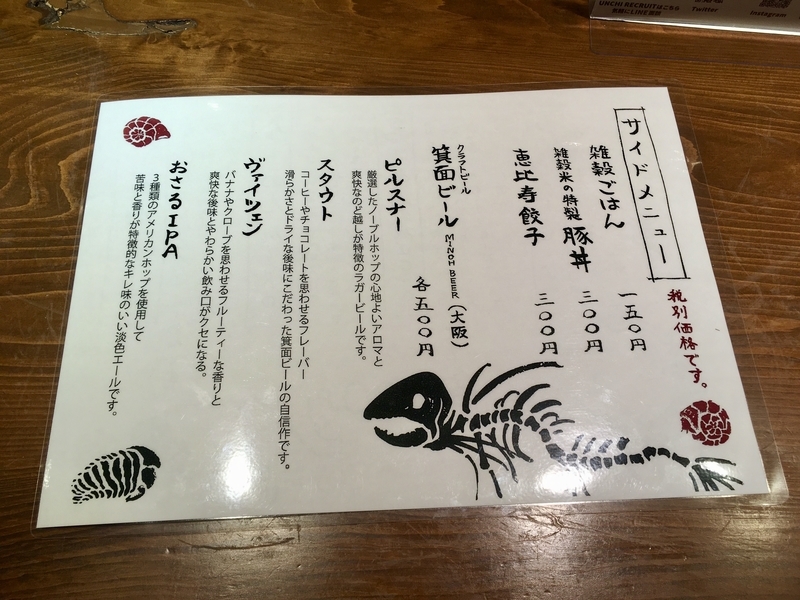 サイドメニュー
税別価格です。
雑穀ごはん 一五〇円
雑穀米の特製 豚丼 三〇〇円
恵比寿餃子 三〇〇円
クラフトビール
箕面ビール MINOH BEER (大阪)
各五〇〇円
ピルスナー
厳選したノーブルホップの心地よいアロマと
爽快なのど越しが特徴のラガービールです。
スタウト
コーヒーやチョコレートを思わせるフレーバー
滑らかさとドライな後味にこだわった箕面ビールの自信作です。
ヴァイツェン
バナナやクローブを思わせるフルーティーな香りと
爽快な後味とやわらかい飲み口がクセになる。
おさるIPA
3種類のアメリカンホップを使用して
苦味と香りが特徴的なキレ味のいい淡色エールです。
UNCHI RECRUITはこちら
Twitter
Instagram